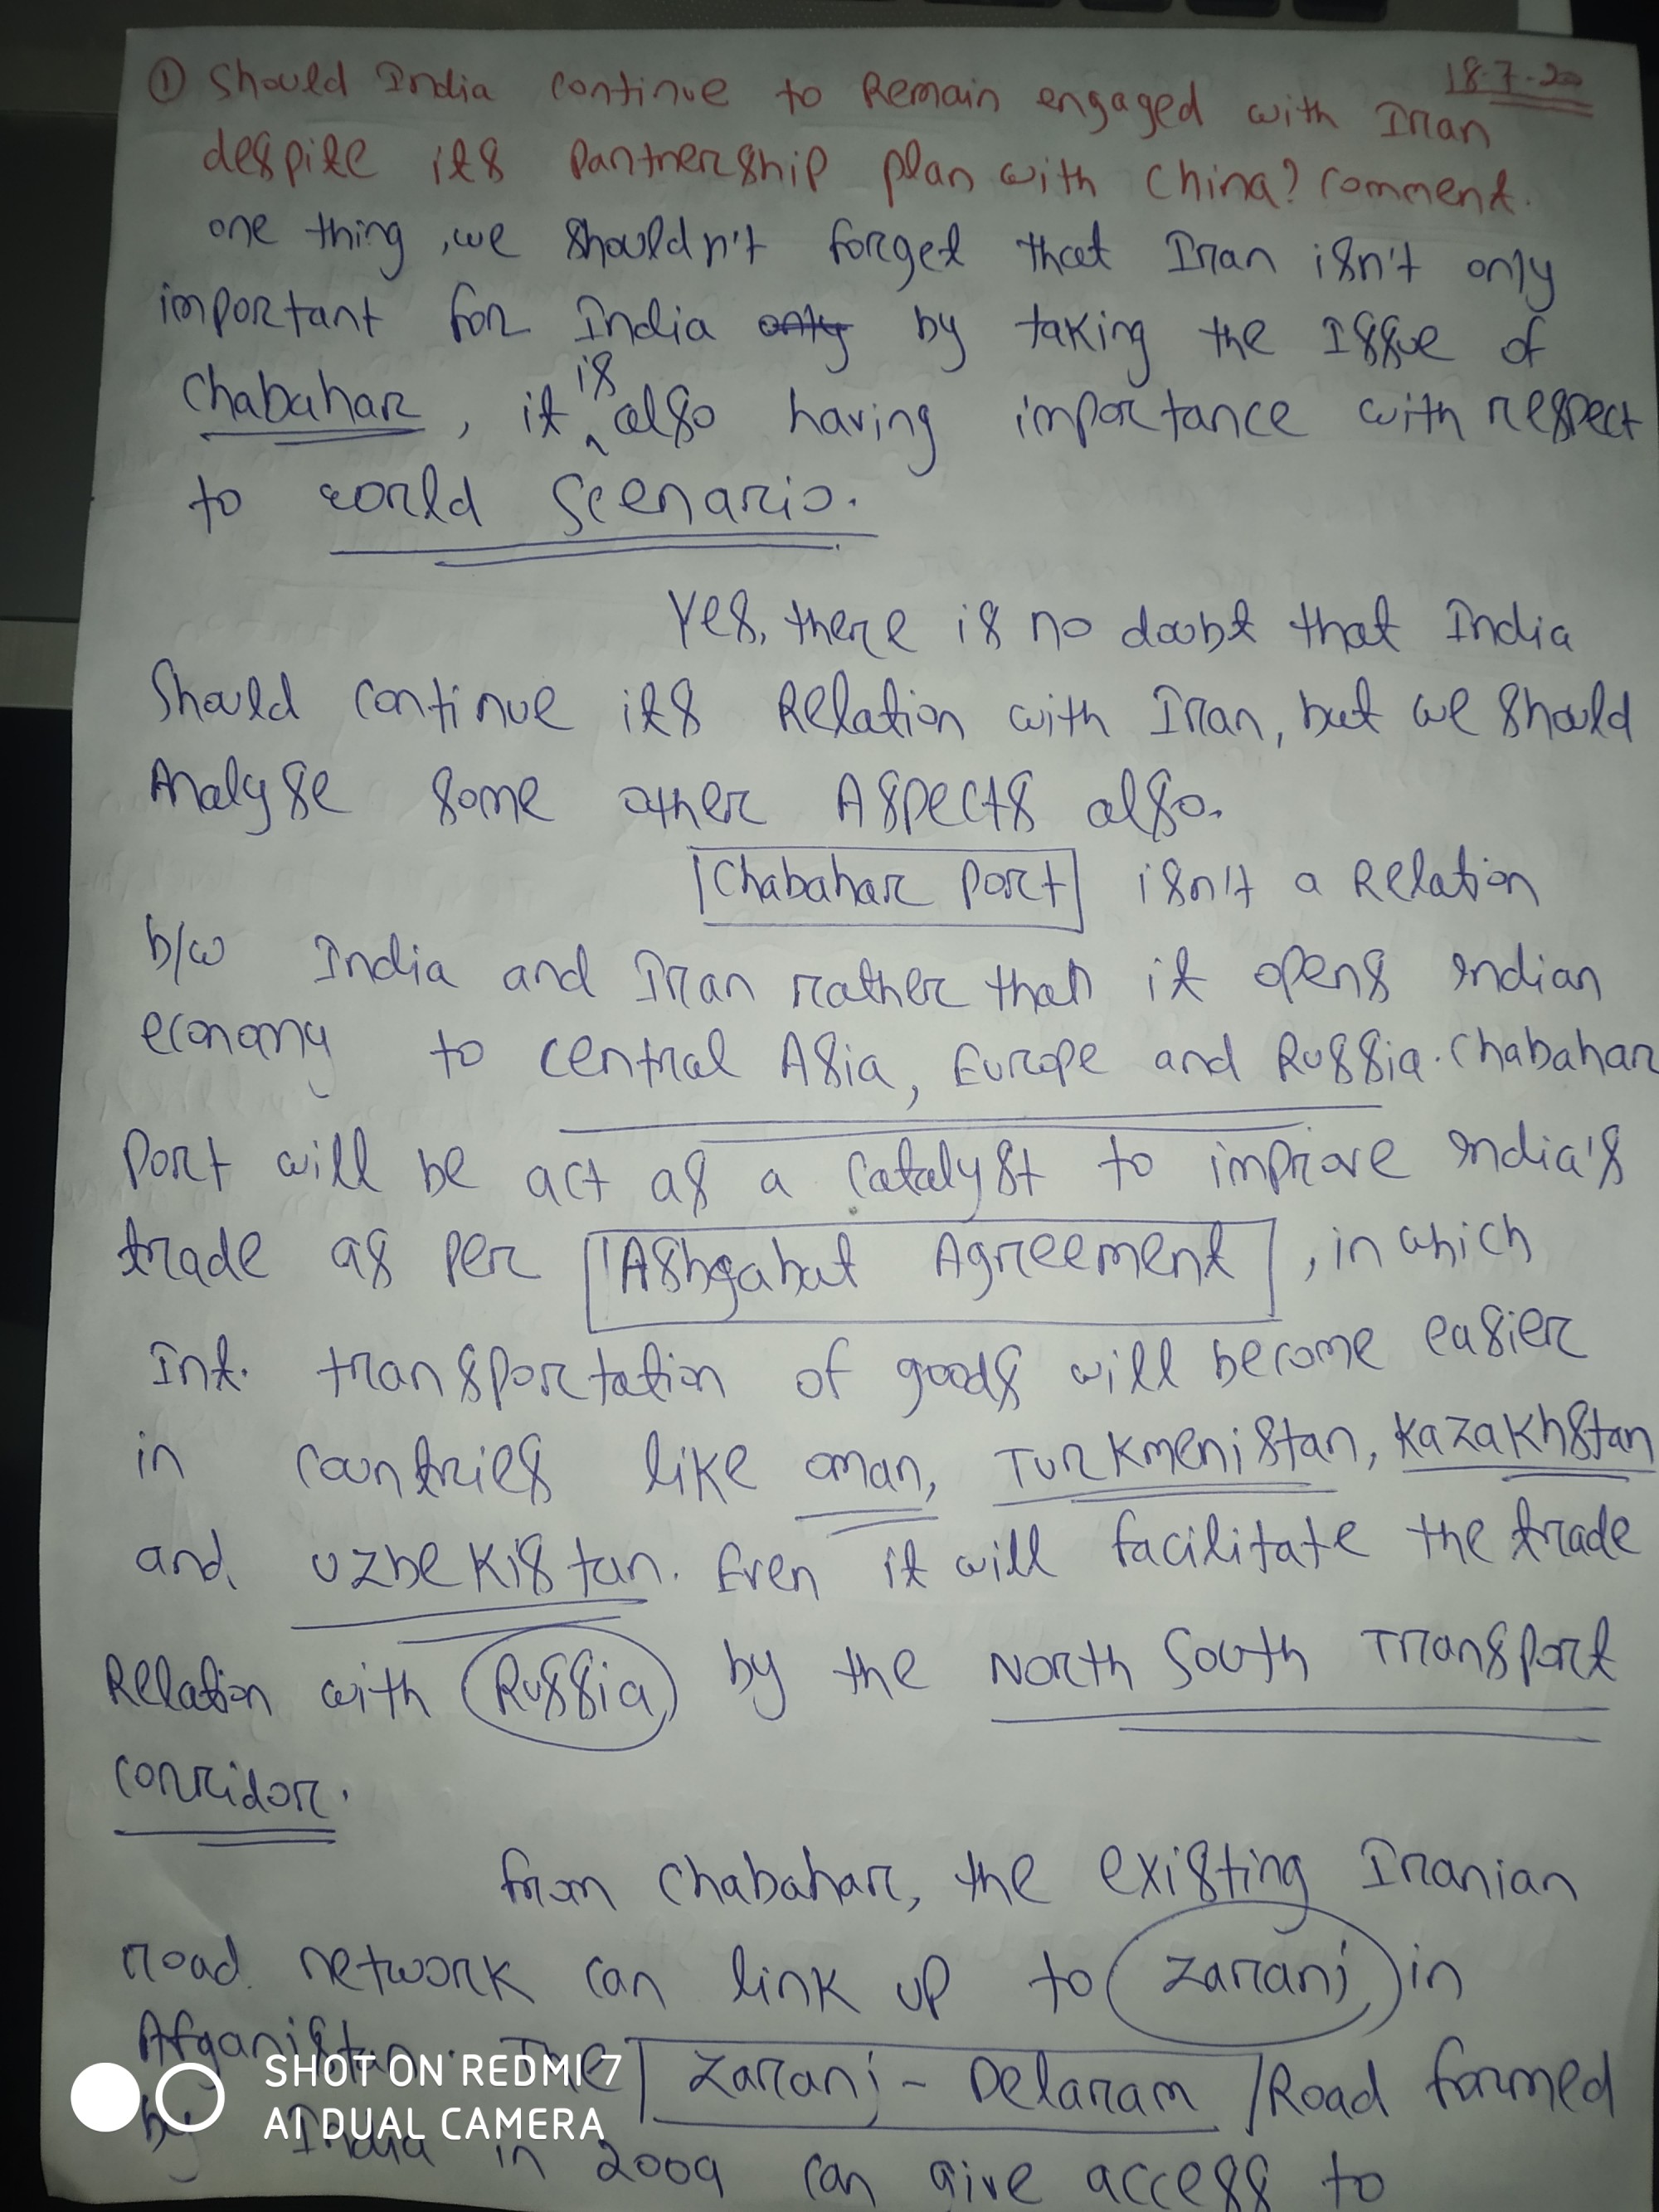 18-7-20
① Should India continue to Remain engaged with Iran
despite its Partnership plan with China? Comment.
one thing, we shouldn't forget that Iran isn't only
important for India only by taking the Issue of
Chabahar, it is also having importance with respect
to world Scenario.
Yes, there is no doubt that India
Should continue its Relation with Iran, but we should
Analyse some other Aspects also.
Chabahar Port isn't a Relation
b/w India and Iran rather than it opens Indian
economy to central Asia, Europe and Russia. Chabahar
Port will be act as a Catalyst to improve India's
trade as per Ashgabat Agreement, in which
Int. transportation of goods will become easier
in countries like oman, Turkmenistan, Kazakhstan
and uzbekistan. Even it will facilitate the trade
Relation with Russia by the North South Transport
corridor.
from Chabahar, the existing Iranian
road network can link up to Zaranj in
Afganistan. The Zaranj - Delaram Road formed
by India in 2009 can give access to
SHOT ON REDMI 7
AI DUAL CAMERA